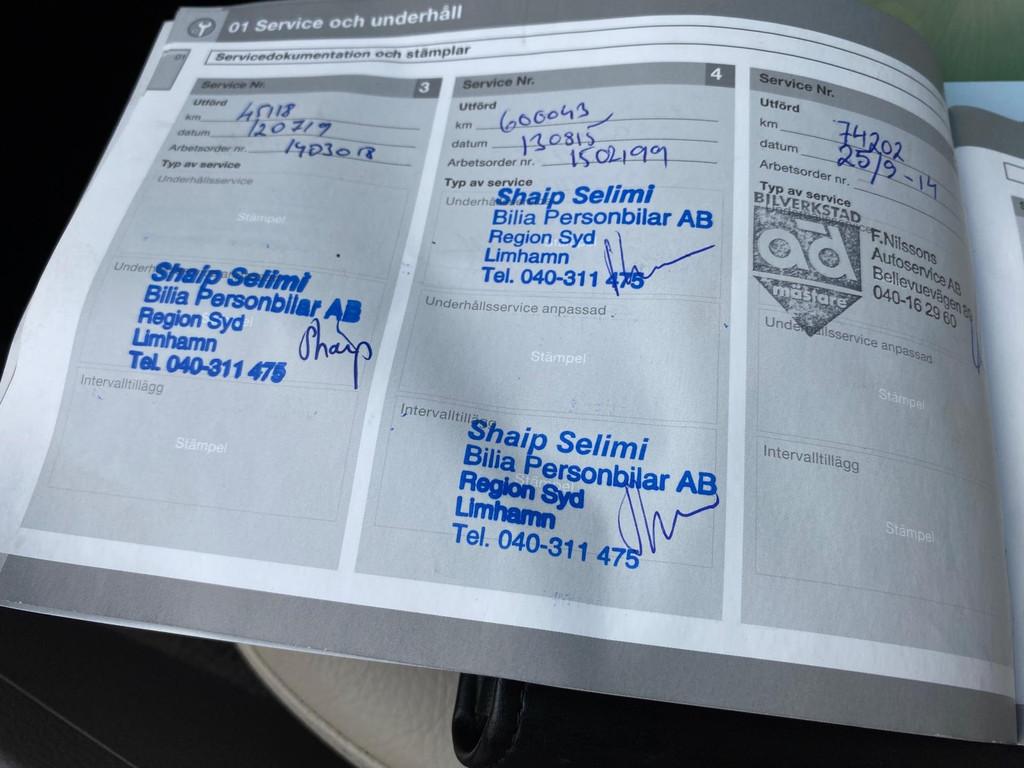 01 Service och underhåll
01
Servicedokumentation och stämplar
Service Nr. 3
Utförd
km 45118
datum 120719
Arbetsorder nr. 1403018
Typ av service
Underhållsservice
Stämpel
Shaip Selimi
Bilia Personbilar AB
Region Syd
Limhamn
Tel. 040-311 475
Shaip
Intervalltillägg
Stämpel
Service Nr. 4
Utförd
km 600043
datum 130815
Arbetsorder nr. 1502199
Typ av service
Shaip Selimi
Bilia Personbilar AB
Region Syd
Limhamn
Tel. 040-311 475
Underhållsservice anpassad
Stämpel
Intervalltillägg
Shaip Selimi
Bilia Personbilar AB
Region Syd
Limhamn
Tel. 040-311 475
Service Nr.
Utförd
km 74202
datum 25/9-14
Arbetsorder nr.
Typ av service
BILVERKSTAD
ad
mästare
F.Nilssons
Autoservice AB
Bellevuevägen
040-16 29 60
Underhållsservice anpassad
Stämpel
Intervalltillägg
Stämpel